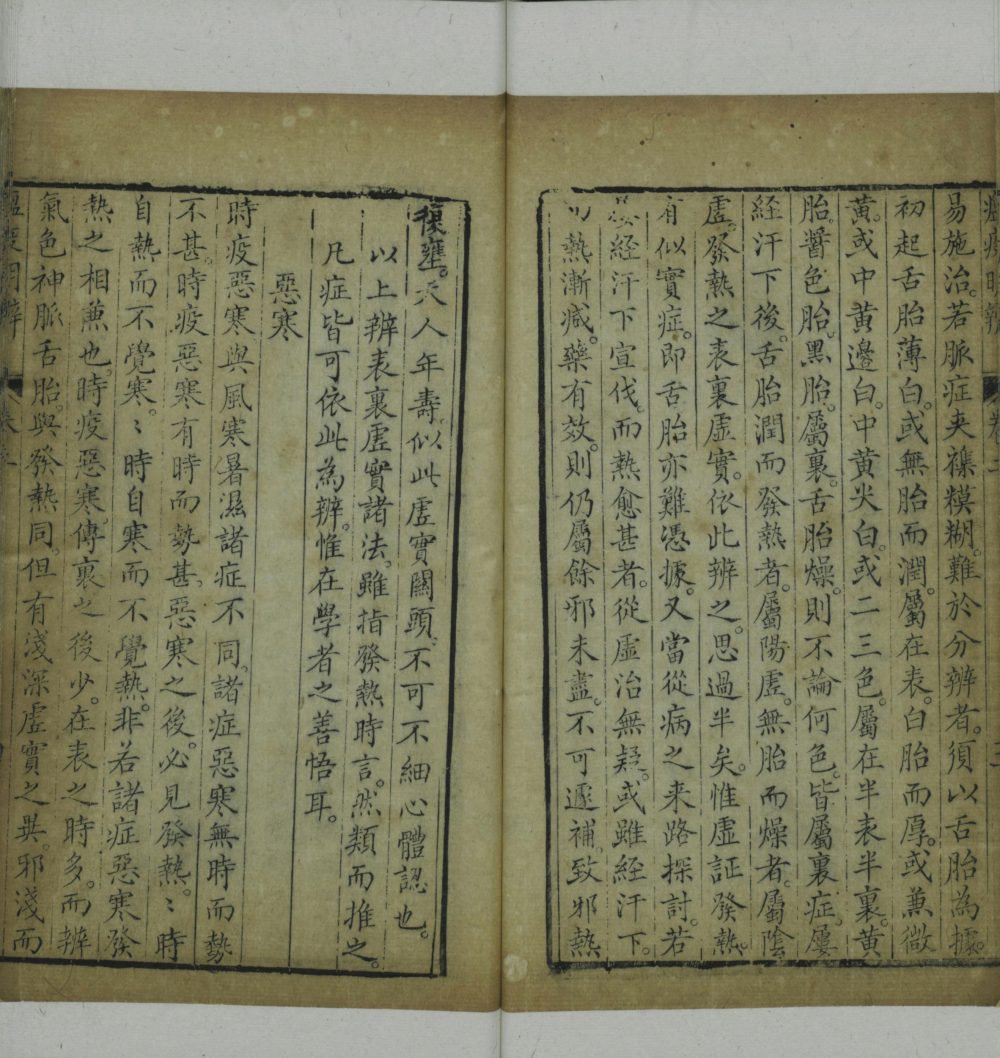 易施治。若脈症夾襍糢糊。難於分辨者。須以舌胎為據。
初起舌胎薄白。或無胎而潤。屬在表。白胎而厚。或兼微
黃。或中黃邊白。中黃尖白。或二三色。屬在半表半裏。黃
胎。醬色胎。黑胎。屬裏。舌胎燥。則不論何色。皆屬裏症。屢
經汗下後。舌胎潤而發熱者。屬陽虛。無胎而燥者。屬陰
虛。發熱之表裏虛實。依此辨之。思過半矣。惟虛証發熱。
有似實症。即舌胎亦難憑據。又當從病之来路探討。若
經汗下宣伐。而熱愈甚者。從虛治無疑。或雖經汗下。
熱漸减。藥有效。則仍屬餘邪未盡。不可遽補。致邪熱
復壅。夭人年壽。似此虛實關頭。不可不細心體認也。
以上辨表裏虛實諸法。雖指發熱時言。然類而推之。
凡症皆可依此為辨。惟在學者之善悟耳。
惡寒
時疫惡寒與風寒暑濕諸症不同。諸症惡寒無時而勢
不甚。時疫惡寒有時而勢甚。惡寒之後。必見發熱。〻時
自熱而不覺寒。〻時自寒而不覺熱。非若諸症惡寒發
熱之相兼也。時疫惡寒。傳裏之後少。在表之時多。而辨
氣色神脈舌胎。與發熱同。但有淺深虛實之異。邪淺而